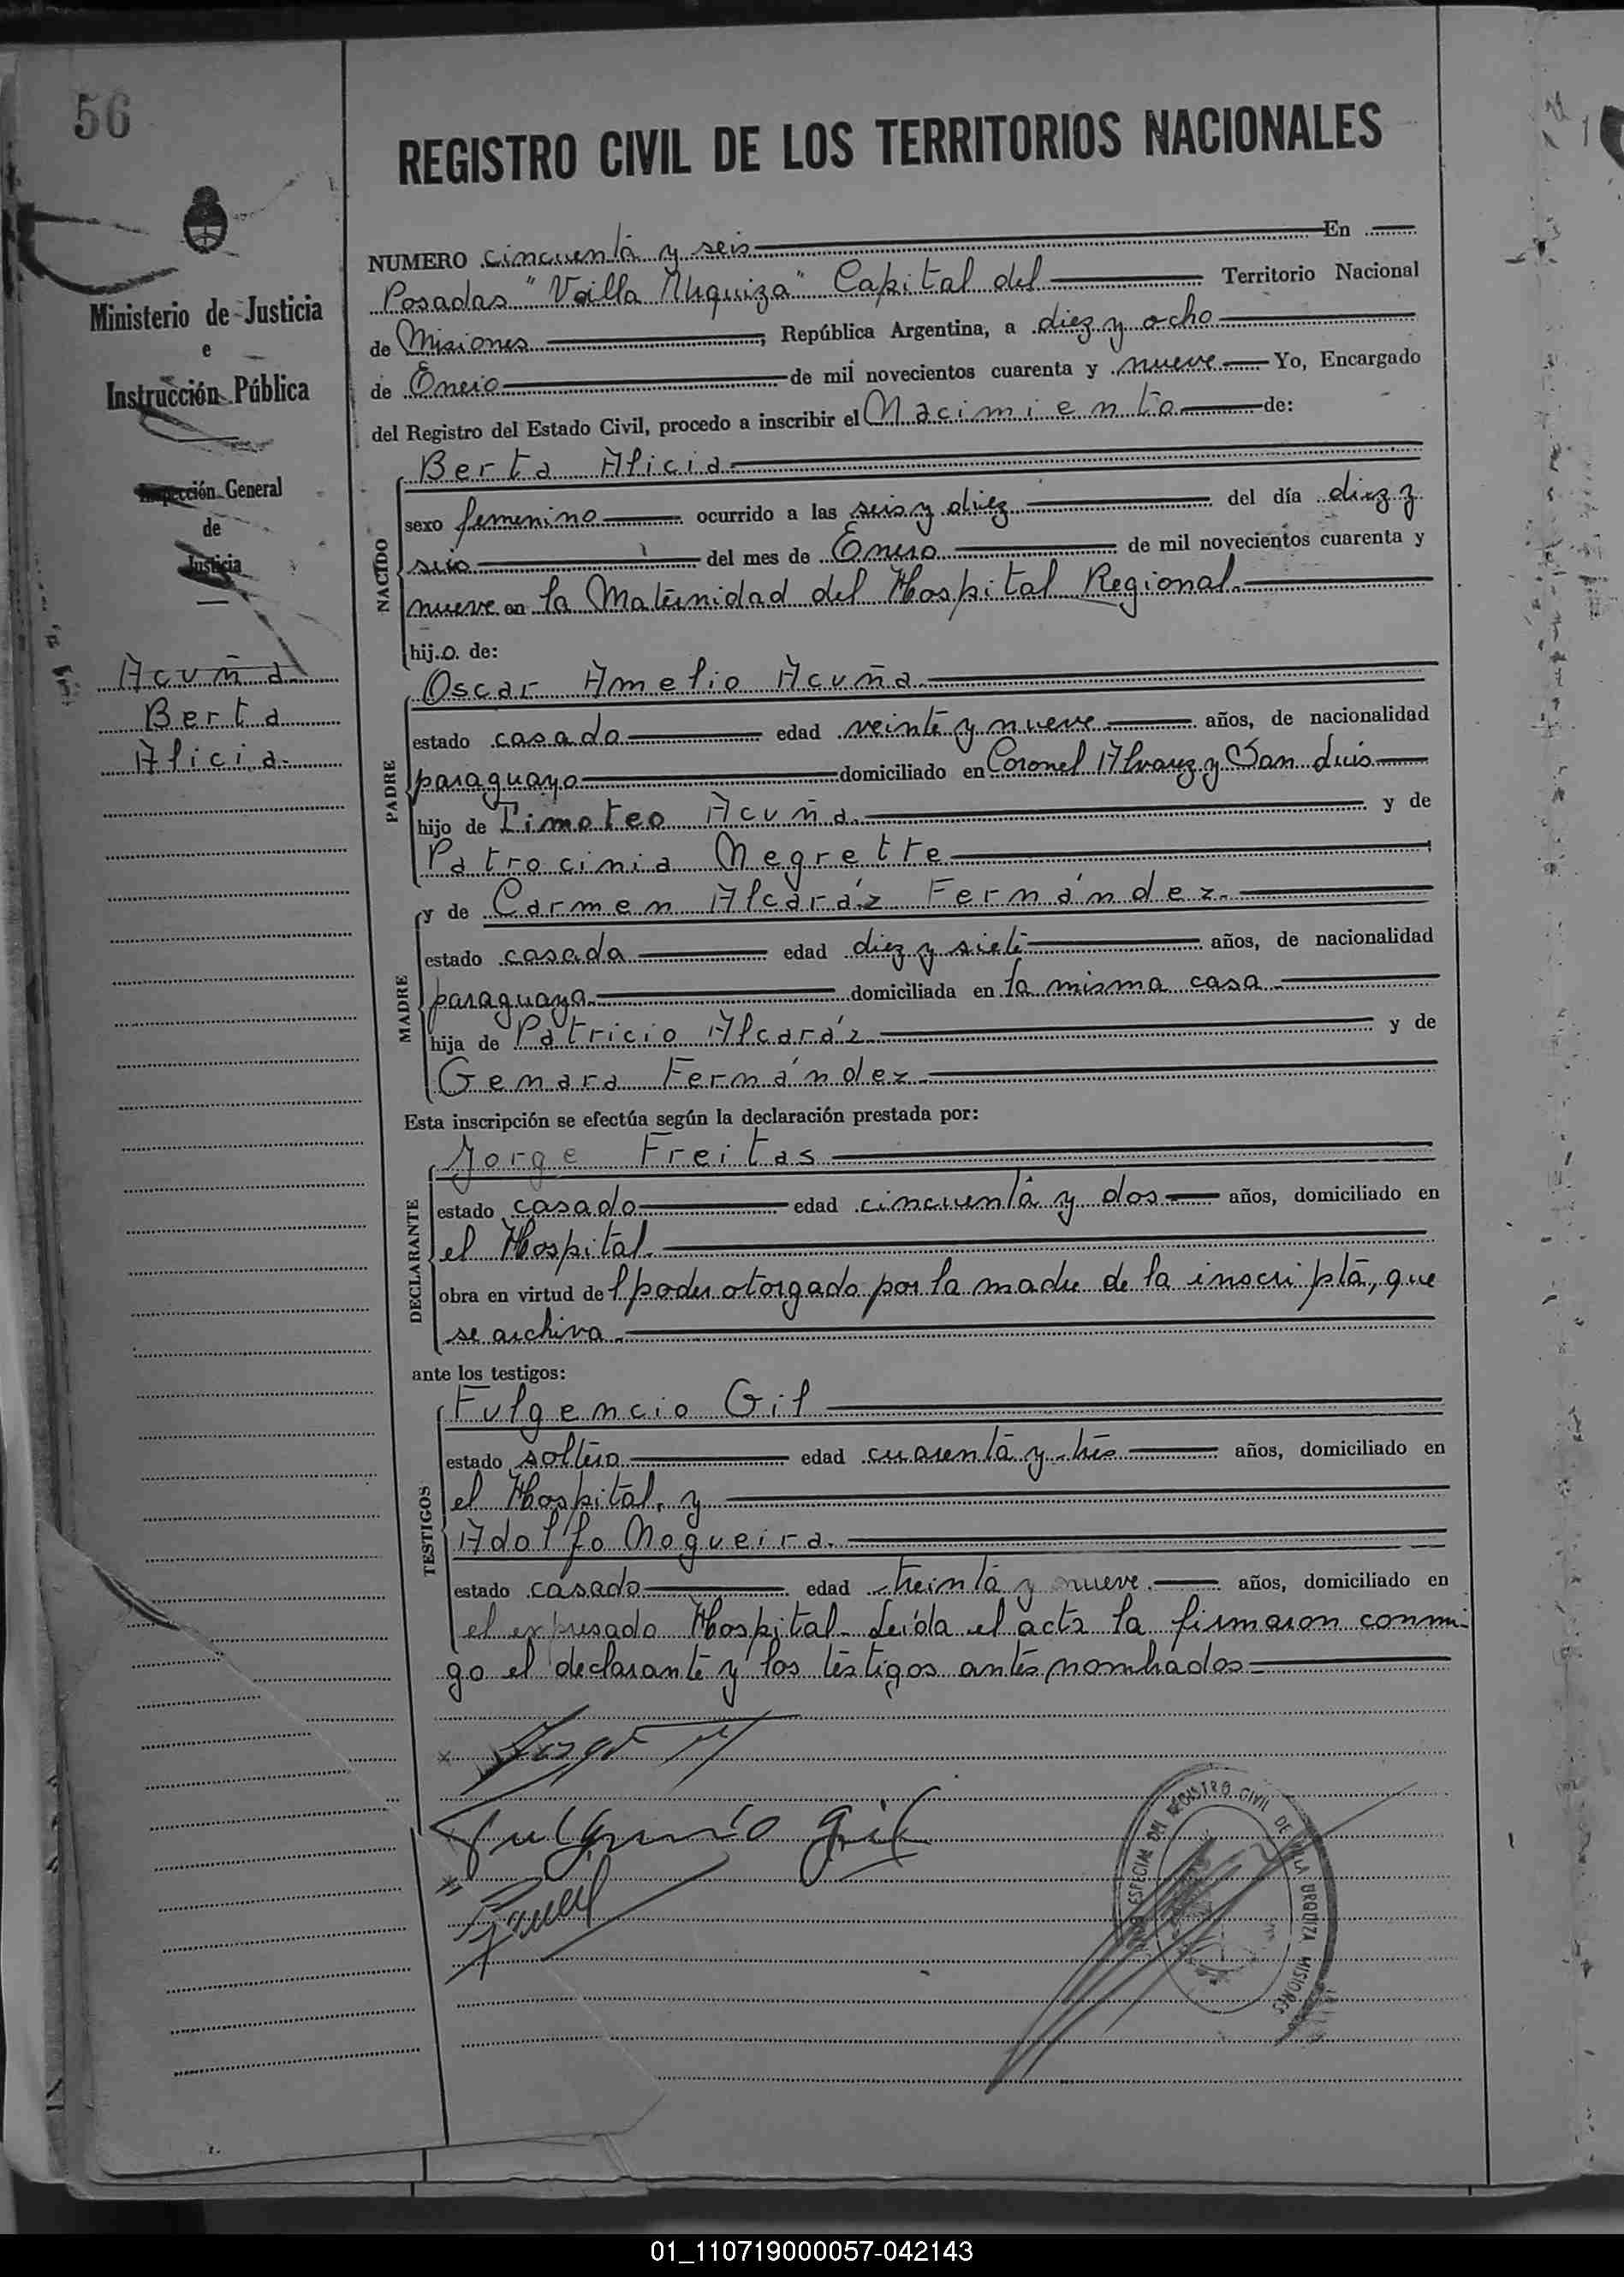 56
REGISTRO CIVIL DE LOS TERRITORIOS NACIONALES
Ministerio de Justicia
e
Instrucción Pública
Inspección General
de
Justicia
Acuña
Berta
Alicia.
NUMERO cincuenta y seis En
Posadas "Villa Urquiza" Capital del Territorio Nacional
de Misiones, República Argentina, a diez y ocho
de Enero de mil novecientos cuarenta y nueve Yo, Encargado
del Registro del Estado Civil, procedo a inscribir el Nacimiento de:
NACIDO
Berta Alicia
sexo femenino ocurrido a las seis y diez del día diez y
seis del mes de Enero de mil novecientos cuarenta y
nueve en la Maternidad del Hospital Regional.
hij.o. de:
PADRE
Oscar Amelio Acuña
estado casado edad veinte y nueve años, de nacionalidad
paraguayo domiciliado en Coronel Alvarez y San Luis
hijo de Timoteo Acuña. y de
Patrocinia Negrette
MADRE
y de Carmen Alcaráz Fernández.
estado casada edad diez y siete años, de nacionalidad
paraguaya. domiciliada en la misma casa
hija de Patricio Alcaráz y de
Genara Fernández.
Esta inscripción se efectúa según la declaración prestada por:
DECLARANTE
Jorge Freitas
estado casado edad cincuenta y dos años, domiciliado en
el Hospital.
obra en virtud del poder otorgado por la madre de la inscripta, que
se archiva.
ante los testigos:
TESTIGOS
Fulgencio Gil
estado soltero edad cuarenta y tres años, domiciliado en
el Hospital, y
Adolfo Nogueira.
estado casado edad treinta y nueve años, domiciliado en
el expresado Hospital. Leída el acta la firmaron conmi-
go el declarante y los testigos antes nombrados
Fulgencio Gil
ESPECIAL DEL REGISTRO CIVIL DE VILLA URQUIZA MISIONES
01_110719000057-042143